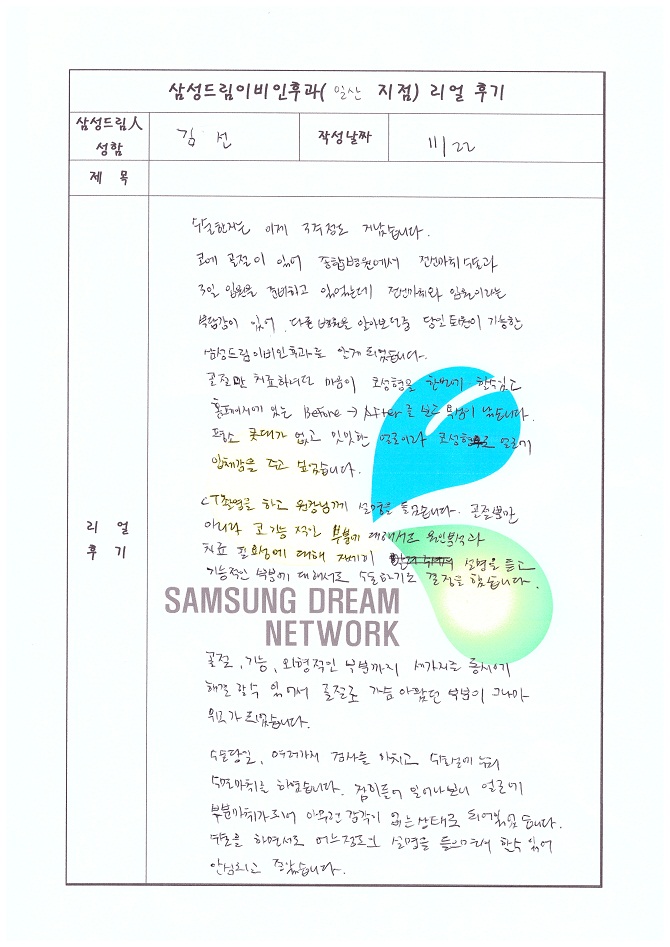 삼성드림이비인후과( 일산 지점) 리얼 후기
삼성드림人 성함
김 선
작성날짜
11/22
제 목
리 얼 후 기
수술한지는 이제 3주정도 지났습니다.
코에 골절이 있어 종합병원에서 전신마취수술과
3일 입원을 준비하고 있었는데 전신마취와 입원이라는
부담감이 있어, 다른 병원을 알아보던중 당일퇴원이 가능한
삼성드림이비인후과로 알게되었습니다.
골절만 치료하려던 마음이 코성형을 한번에 할수있고
홈페이지에 있는 Before → After를 보고 욕심이 났습니다.
평소 콧대가 없고 밋밋한 얼굴이라 코성형으로 얼굴에
입체감을 주고 싶었습니다.
CT촬영을 하고 원장님께 설명을 들었습니다. 골절뿐만
아니라 코기능적인 부분에 대해서도 원인분석과
치료 필요성에 대해 자세히 설명을 듣고
기능적인 부분에 대해서도 수술하기로 결정을 했습니다.
SAMSUNG DREAM
NETWORK
골절, 기능, 외형적인 부분까지 세가지를 동시에
해결 할수 있어서 골절로 가슴아팠던 부분이 그나마
위로가 되었습니다.
수술당일, 여러가지 검사를 마치고 수술실에 누워
수면마취를 하였습니다. 잠이들어 일어나보니 얼굴에
부분마취가되어 아무런 감각이 없는상태로 되어있었습니다.
수술을 하면서도 어느정도 설명을 들으면서 할수 있어
안심되고 좋았습니다.